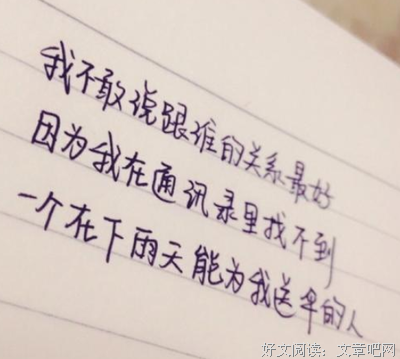 我不敢说跟谁的关系最好
因为我在通讯录里找不到
一个在下雨天能为我送伞的人
好文阅读：文章吧网